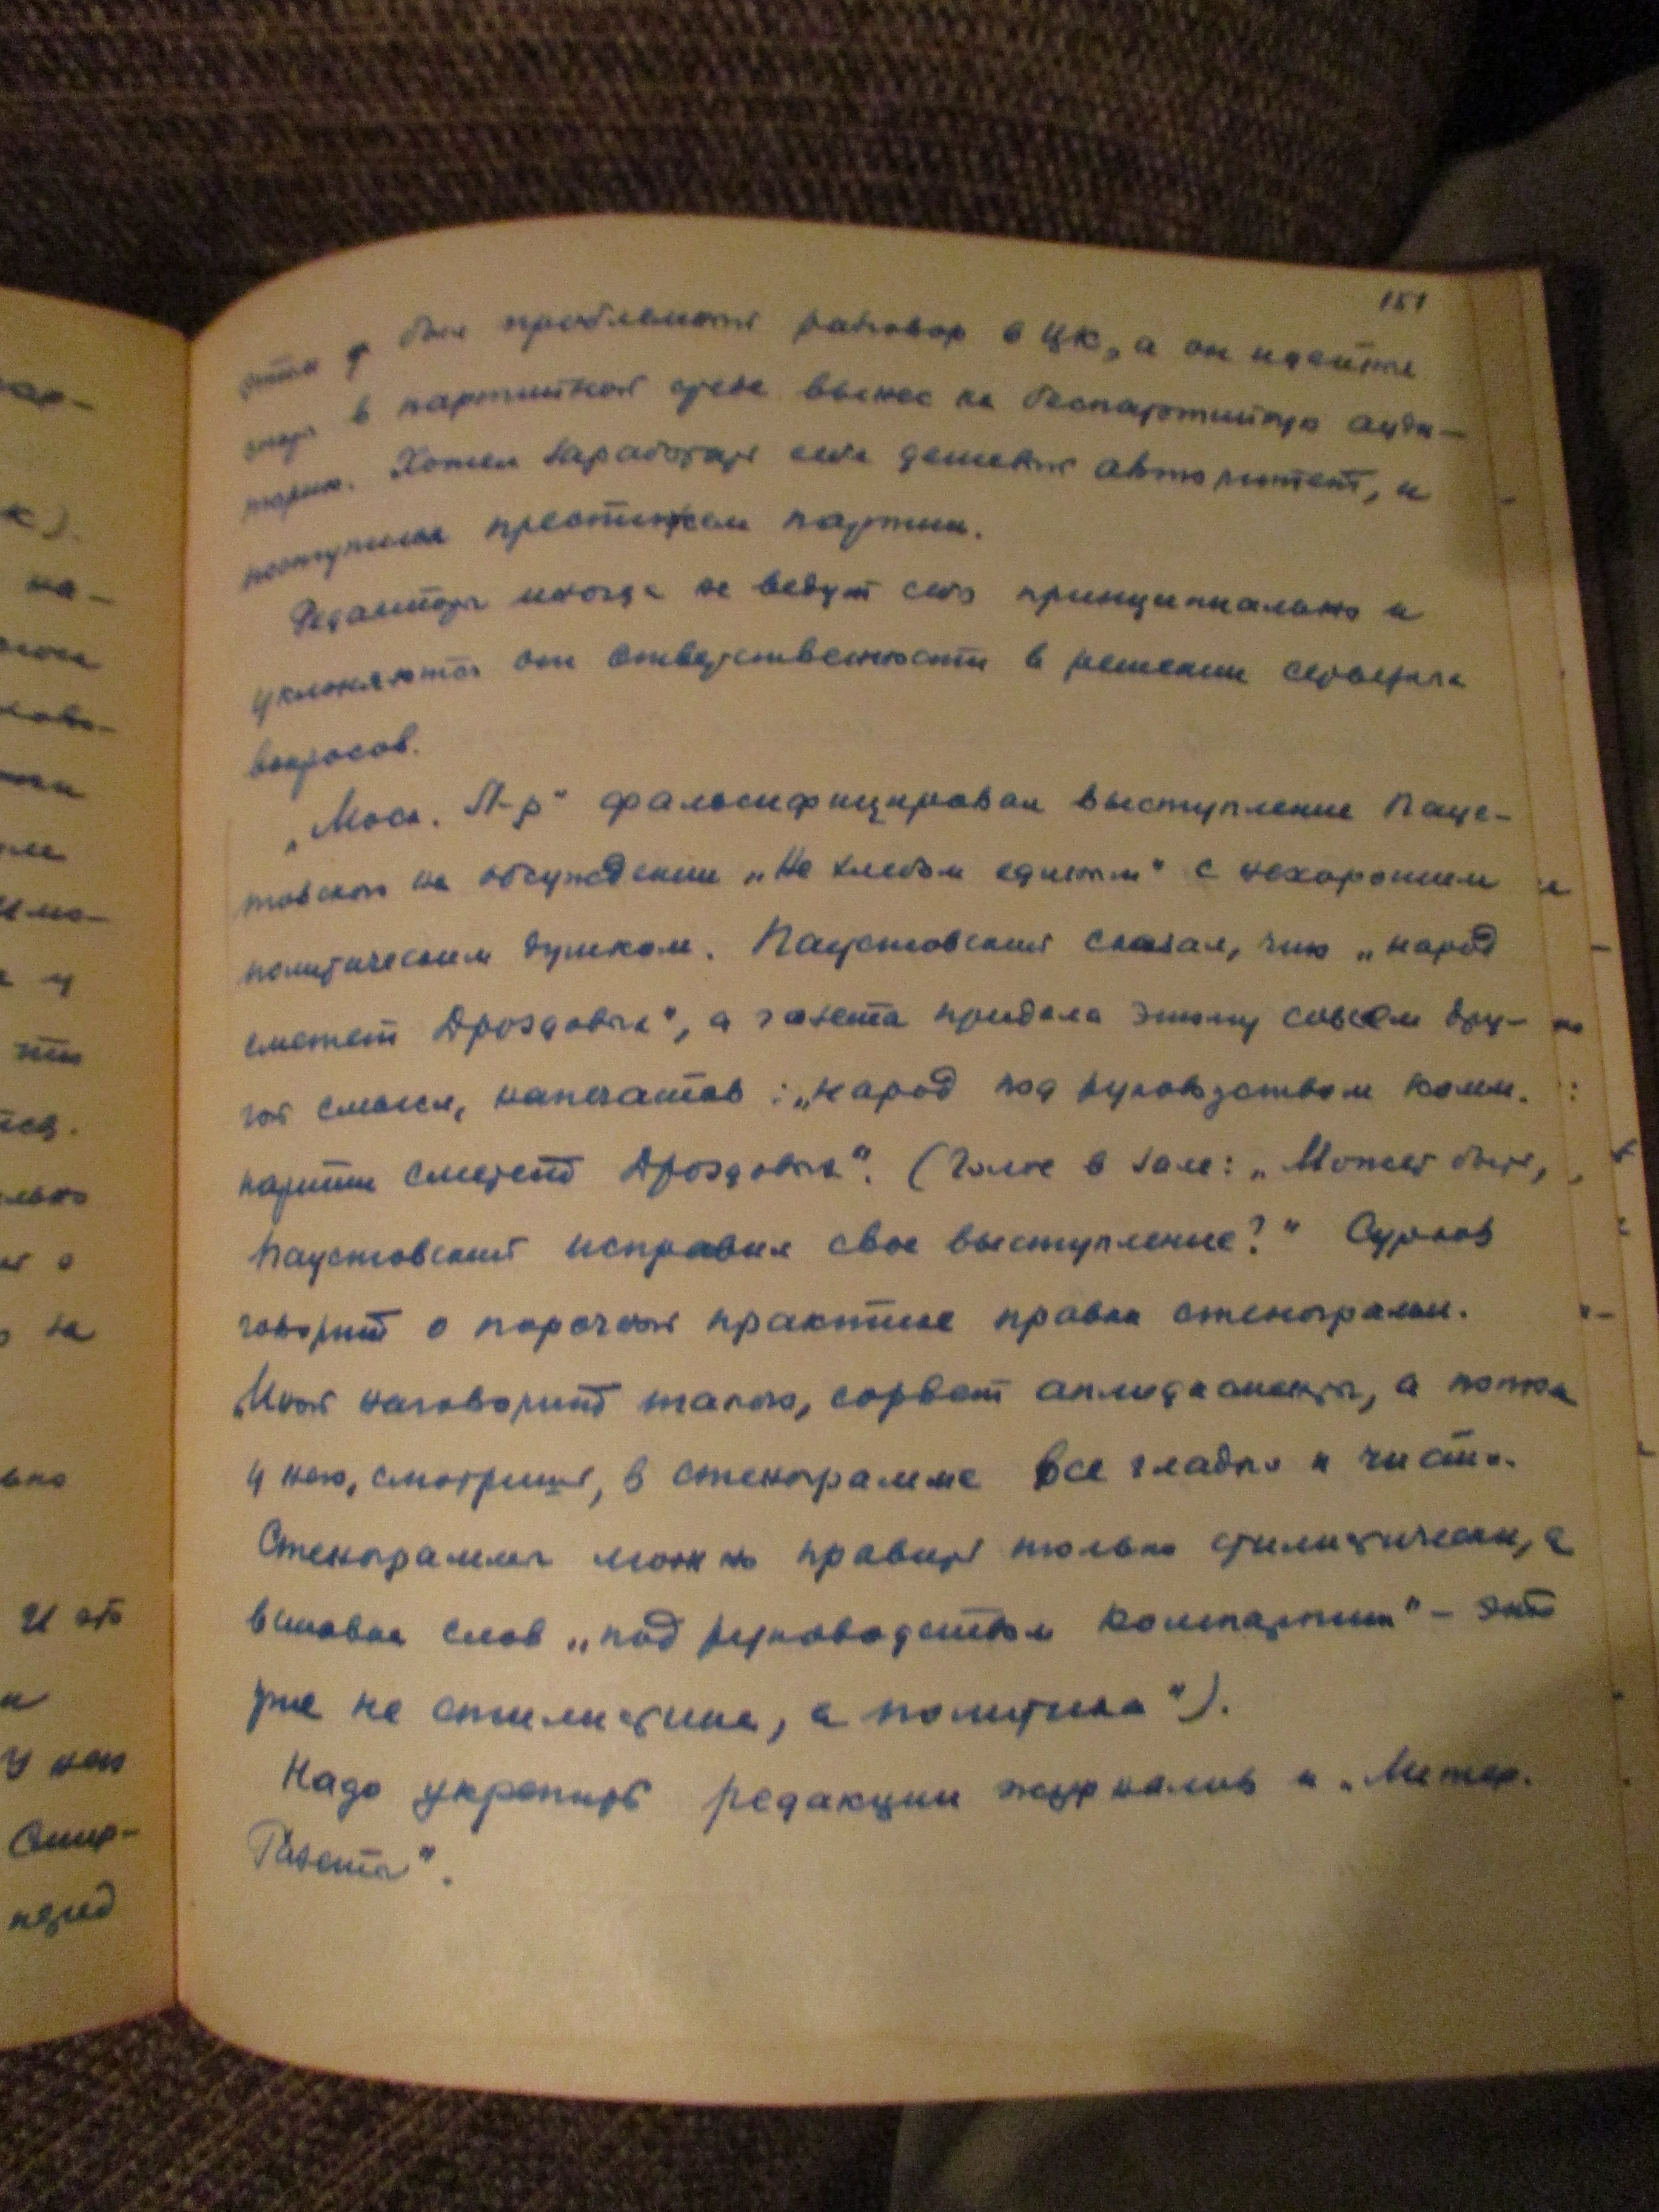 151
этим был проблемный разговор в ЦК, а он идейный
в партийной среде вынес на беспартийную ауди-
торию. Хотел заработать себе дешевый авторитет, и
поступился престижем партии.
Редакторы иногда не ведут себя принципиально и
уклоняются от ответственности в решении серьезных
вопросов.
„Моск. Л-р“ фальсифицировал выступление Паус-
товского на обсуждении „Не хлебом единым“ с нехорошим
политическим душком. Паустовский сказал, что „народ
сметет Дроздовых“, а газета придала этому совсем дру-
гой смысл, напечатав: „народ под руководством комм.
партии сметет Дроздовых“. (Голос в зале: „Может быть,
Паустовский исправил свое выступление?“ Сурков
говорит о порочной практике правки стенограмм.
„Иной наговорит такого, сорвет аплодисменты, а потом
у него, смотришь, в стенограмме все гладко и чисто.
Стенограммы можно править только стилистически, а
вставка слов „под руководством компартии“ – это
уже не стилистика, а политика“).
Надо укрепить редакции журналов и „Литер.
Газеты“.
на-
И это
у него
Смир-
перед